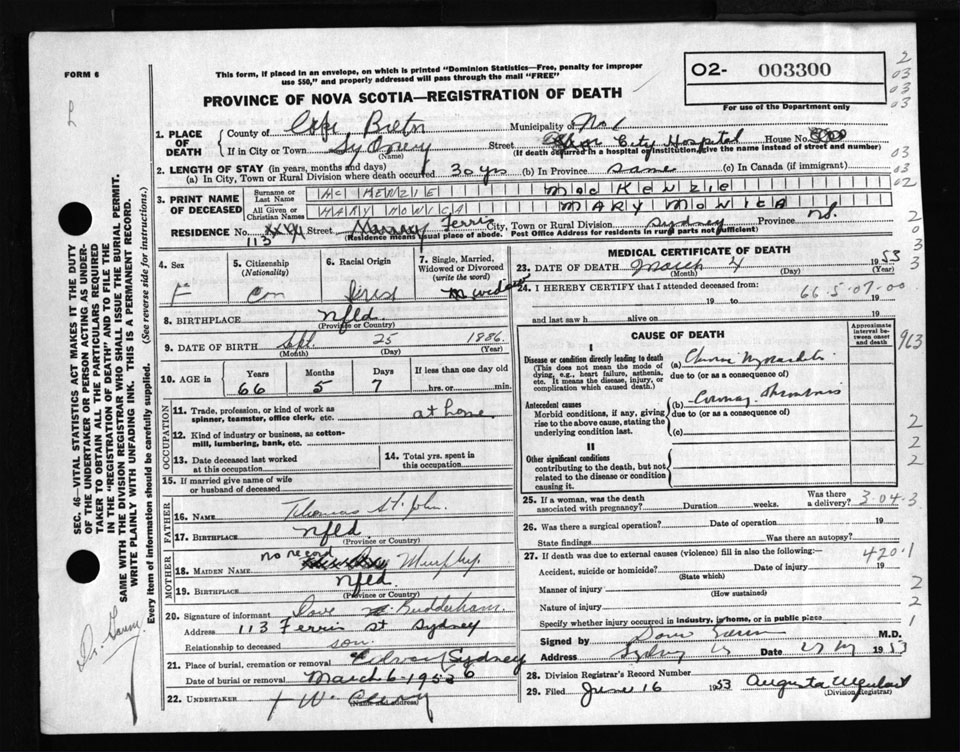 FORM 6
This form, if placed in an envelope, on which is printed "Dominion Statistics—Free, penalty for improper
use $50," and properly addressed will pass through the mail "FREE"
PROVINCE OF NOVA SCOTIA—REGISTRATION OF DEATH
02- 003300
For use of the Department only
1. PLACE OF DEATH
County of Cape Breton Municipality of No 1
If in City or Town Sydney (Name) Street City Hospital House No.
(If death occurred in a hospital or institution, give the name instead of street and number)
2. LENGTH OF STAY (in years, months and days)
(a) In City, Town or Rural Division where death occurred 30 yrs (b) In Province same (c) In Canada (if immigrant)
3. PRINT NAME OF DECEASED
Surname or Last Name MC KENZIE MAC KENZIE
All Given or Christian Names MARY MONICA MARY MONICA
RESIDENCE No. 113 Street Ferris City, Town or Rural Division Sydney Province N.S.
(Residence means usual place of abode. Post Office Address for residents in rural parts not sufficient)
4. Sex F
5. Citizenship (Nationality) Can
6. Racial Origin Irish
7. Single, Married, Widowed or Divorced (write the word)
8. BIRTHPLACE nfld. (Province or Country)
9. DATE OF BIRTH Sept. 25 1886.
(Month) (Day) (Year)
10. AGE in Years 66 Months 5 Days 7 If less than one day old hrs. or min.
OCCUPATION
11. Trade, profession, or kind of work as spinner, teamster, office clerk, etc. at home
12. Kind of industry or business, as cotton-mill, lumbering, bank, etc.
13. Date deceased last worked at this occupation
14. Total yrs. spent in this occupation
15. If married give name of wife or husband of deceased
FATHER
16. NAME Thomas St. John.
17. BIRTHPLACE nfld (Province or Country)
MOTHER
18. MAIDEN NAME no record Murphy
19. BIRTHPLACE nfld. (Province or Country)
20. Signature of informant Dave
Address 113 Ferris St Sydney
Relationship to deceased son.
21. Place of burial, cremation or removal Sydney
Date of burial or removal March 6 1953
22. UNDERTAKER (Name and address)
MEDICAL CERTIFICATE OF DEATH
23. DATE OF DEATH March 4 1953
(Month) (Day) (Year)
24. I HEREBY CERTIFY that I attended deceased from: 66-5-07-00
19 to 19
and last saw h alive on 19
CAUSE OF DEATH
Approximate interval between onset and death
I
Disease or condition directly leading to death
(This does not mean the mode of dying, e.g., heart failure, asthenia, etc. It means the disease, injury, or complication which caused death.)
(a)
due to (or as a consequence of)
Antecedent causes
Morbid conditions, if any, giving rise to the above cause, stating the underlying condition last.
(b) Coronary
due to (or as a consequence of)
(c)
II
Other significant conditions
contributing to the death, but not related to the disease or condition causing it.
25. If a woman, was the death associated with pregnancy? Duration weeks. Was there a delivery? 3-04-3
26. Was there a surgical operation? Date of operation 19
State findings Was there an autopsy?
27. If death was due to external causes (violence) fill in also the following:— 420.1
Accident, suicide or homicide? (State which) Date of injury 19
Manner of injury (How sustained)
Nature of injury
Specify whether injury occurred in industry, in home, or in public place
Signed by M.D.
Address Sydney Date 1953
28. Division Registrar's Record Number
29. Filed June 16 1953 Augusta (Division Registrar)
SEC. 46—VITAL STATISTICS ACT MAKES IT THE DUTY
OF THE UNDERTAKER OR PERSON ACTING AS UNDER-
TAKER TO OBTAIN ALL THE PARTICULARS REQUIRED
IN THE "REGISTRATION OF DEATH" AND TO FILE THE
SAME WITH THE DIVISION REGISTRAR WHO SHALL ISSUE THE BURIAL PERMIT.
WRITE PLAINLY WITH UNFADING INK. THIS IS A PERMANENT RECORD.
Every item of information should be carefully supplied. (See reverse side for instructions.)
2
03
03
03
03
03
02
2
0
3
3
963
2
2
2
2
2
1